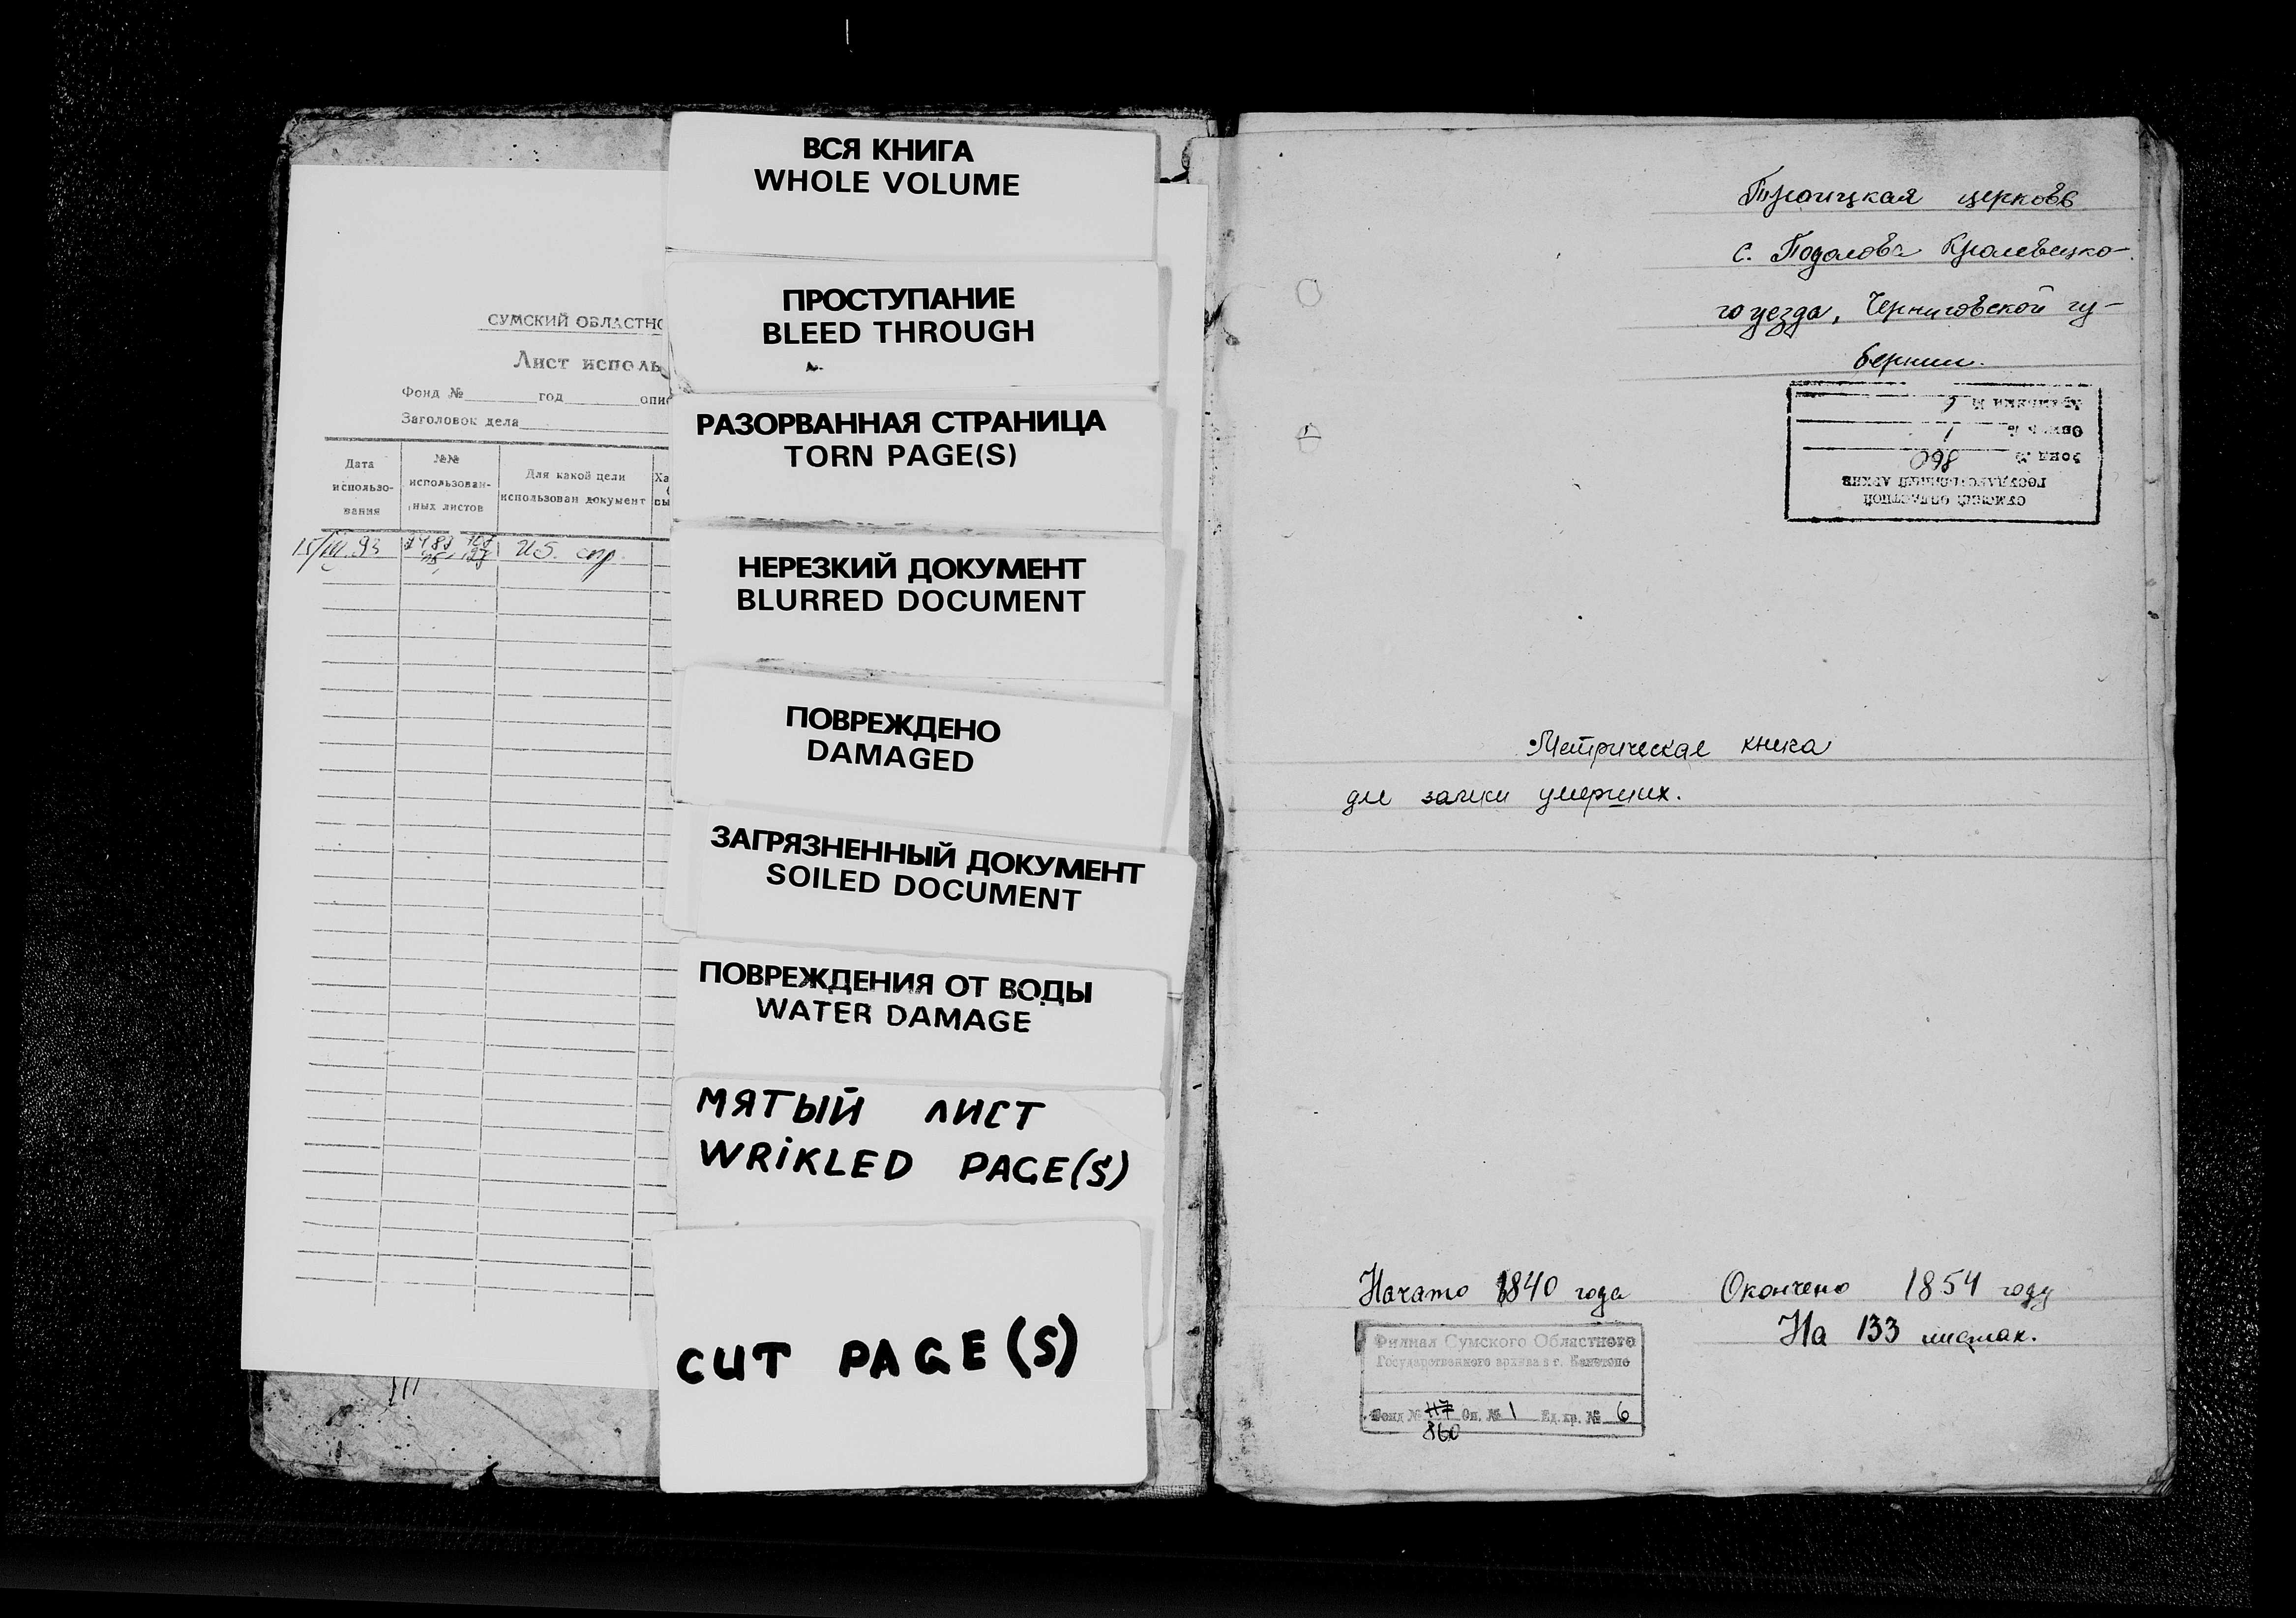 СУМСКИЙ ОБЛАСТНО
Лист исполь
Фонд № год опис
Заголовок дела
Дата использо-вания
№№ использован-ных листов
Для какой цели использован документ
Ха
сы
15/III 93
ВСЯ КНИГА
WHOLE VOLUME
ПРОСТУПАНИЕ
BLEED THROUGH
РАЗОРВАННАЯ СТРАНИЦА
TORN PAGE(S)
НЕРЕЗКИЙ ДОКУМЕНТ
BLURRED DOCUMENT
ПОВРЕЖДЕНО
DAMAGED
ЗАГРЯЗНЕННЫЙ ДОКУМЕНТ
SOILED DOCUMENT
ПОВРЕЖДЕНИЯ ОТ ВОДЫ
WATER DAMAGE
МЯТЫЙ ЛИСТ
WRiKLED PAGE(S)
CUT PAGE(S)
Троицкая церковь
с. Подолова Кролевецко-
го уезда, Черниговской гу-
бернии.
СУМСКИЙ ОБЛАСТНОЙ
ГОСУДАРСТВЕННЫЙ АРХИВ
Фонд № 860
Опись № 1
Ед. хранения № 6
Метрическая книга
для записи умерших.
Начато 1840 года Окончено 1854 году
На 133 листах.
Филиал Сумского Областного
Государственного архива в г. Конотопе
Фонд № 117 Оп. № 1 Ед. хр. № 6
860